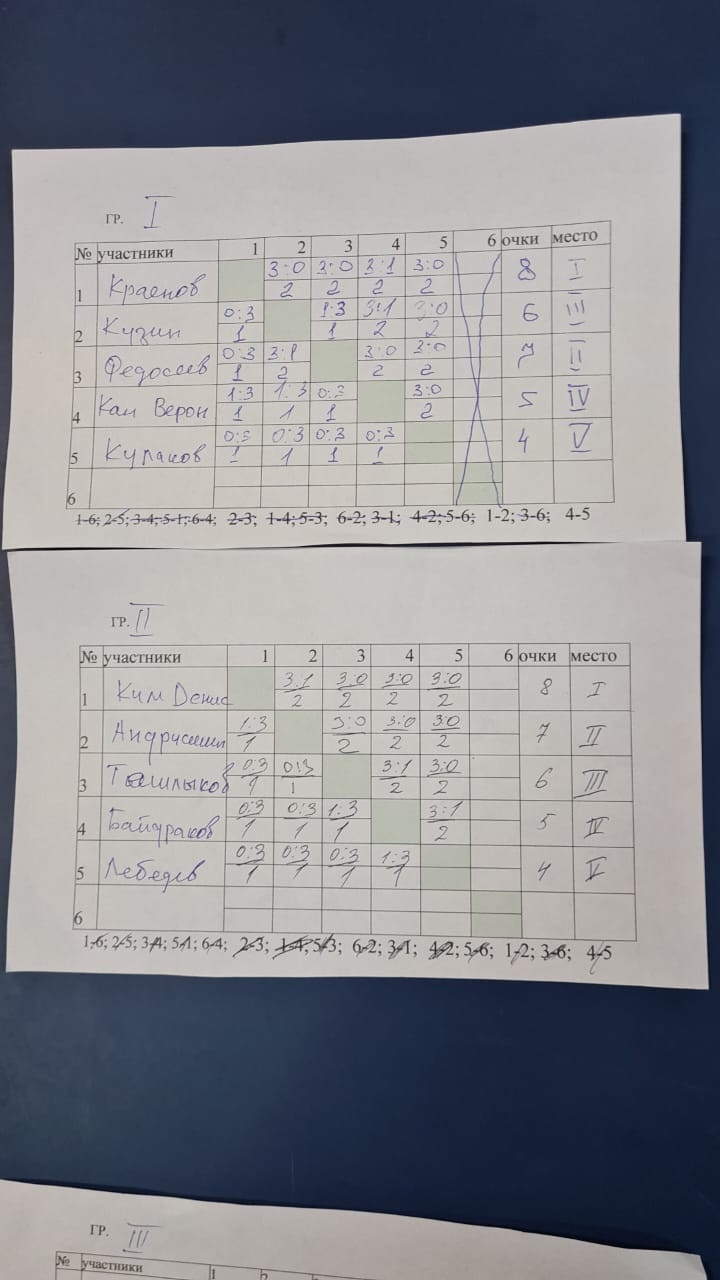 гр. I
№ участники 1 2 3 4 5 6 очки место
1 Краснов 3:0 3:0 3:1 3:0 8 I
2 2 2 2
2 Кузин 0:3 1:3 3:1 3:0 6 III
1 1 2 2
3 Федосеев 0:3 3:1 3:0 3:0 7 II
1 2 2 2
4 Кан Верон 1:3 1:3 0:3 3:0 5 IV
1 1 1 2
5 Кулаков 0:3 0:3 0:3 0:3 4 V
1 1 1 1
6
1-6; 2-5; 3-4; 5-1; 6-4; 2-3; 1-4; 5-3; 6-2; 3-1; 4-2; 5-6; 1-2; 3-6; 4-5
гр. II
№ участники 1 2 3 4 5 6 очки место
1 Ким Денис 3:1 3:0 3:0 3:0 8 I
2 2 2 2
2 1:3 3:0 3:0 3:0 7 II
1 2 2 2
3 Ташлыков 0:3 0:3 3:1 3:0 6 III
1 1 2 2
4 Байдраков 0:3 0:3 1:3 3:1 5 IV
1 1 1 2
5 Лебедев 0:3 0:3 0:3 1:3 4 V
1 1 1 1
6
1-6; 2-5; 3-4; 5-1; 6-4; 2-3; 1-4; 5-3; 6-2; 3-1; 4-2; 5-6; 1-2; 3-6; 4-5
гр. III
№ участники 1 2